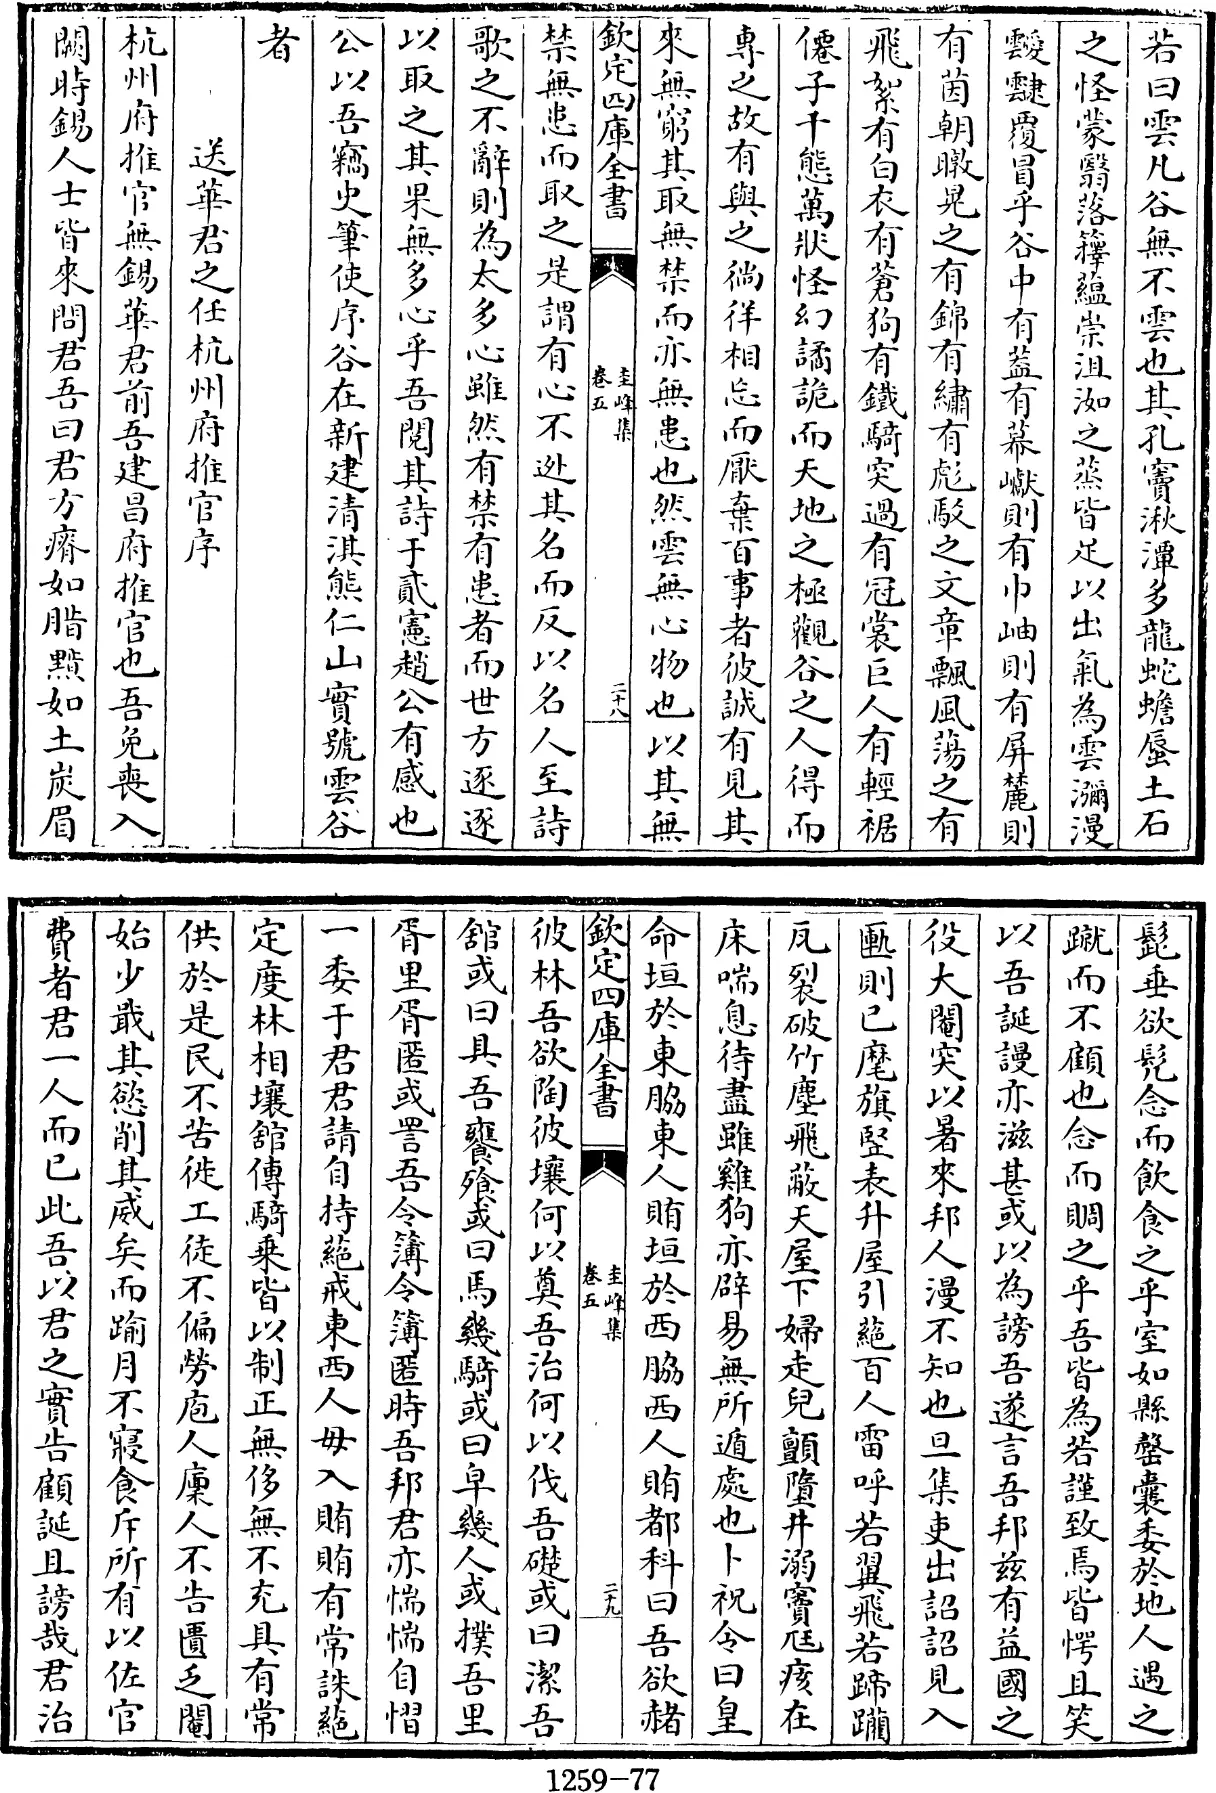 若曰雲凡谷無不雲也其孔竇湫潭多龍蛇蟾蜃土石
之怪蒙翳落籜蘊崇沮洳之蒸皆足以出氣為雲瀰漫
靉靆覆冒乎谷中有葢有幕巘則有巾岫則有屏麓則
有茵朝暾晃之有錦有繡有彪駁之文章飄風蕩之有
飛絮有白衣有蒼狗有鐵騎突過有冠裳巨人有輕裾
僊子千態萬狀怪幻譎詭而天地之極觀谷之人得而
專之故有與之徜徉相忘而厭棄百事者彼誠有見其
來無窮其取無禁而亦無患也然雲無心物也以其無
欽定四庫全書
圭峰集
卷五
二十八
禁無患而取之是謂有心不逃其名而反以名人至詩
歌之不辭則為太多心雖然有禁有患者而世方逐逐
以取之其果無多心乎吾閱其詩于貳憲趙公有感也
公以吾竊史筆使序谷在新建清淇熊仁山實號雲谷
者
送華君之任杭州府推官序
杭州府推官無錫華君前吾建昌府推官也吾免喪入
闕時錫人士皆來問君吾曰君方瘠如腊黰如土炭眉
髭垂欲髡念而飲食之乎室如縣罄囊委於地人遇之
蹴而不顧也念而賙之乎吾皆為若謹致焉皆愕且笑
以吾誕謾亦滋甚或以為謗吾遂言吾邦兹有益國之
役大閹突以暑來邦人漫不知也旦集吏出詔詔見入
匭則已麾旗竪表升屋引絙百人雷呼若翼飛若蹄躪
瓦裂破竹塵飛蔽天屋下婦走兒顛墮井溺竇尫痎在
床喘息待盡雖雞狗亦辟易無所遁處也卜祝令曰皇
命垣於東脇東人賄垣於西脇西人賄都科曰吾欲赭
欽定四庫全書
圭峰集
卷五
二十九
彼林吾欲陶彼壤何以奠吾治何以伐吾礎或曰潔吾
舘或曰具吾饔飱或曰馬幾騎或曰皁幾人或撲吾里
胥里胥匿或詈吾令簿令簿匿時吾邦君亦惴惴自慴
一委于君君請自持絙戒東西人毋入賄賄有常誅絙
定度林相壤舘傳騎乗皆以制正無侈無不充具有常
供於是民不苦徙工徒不偏勞庖人廩人不告匱乏閹
始少戢其慾削其威矣而踰月不寢食斥所有以佐官
費者君一人而已此吾以君之實告顧誕且謗哉君治
1259-77